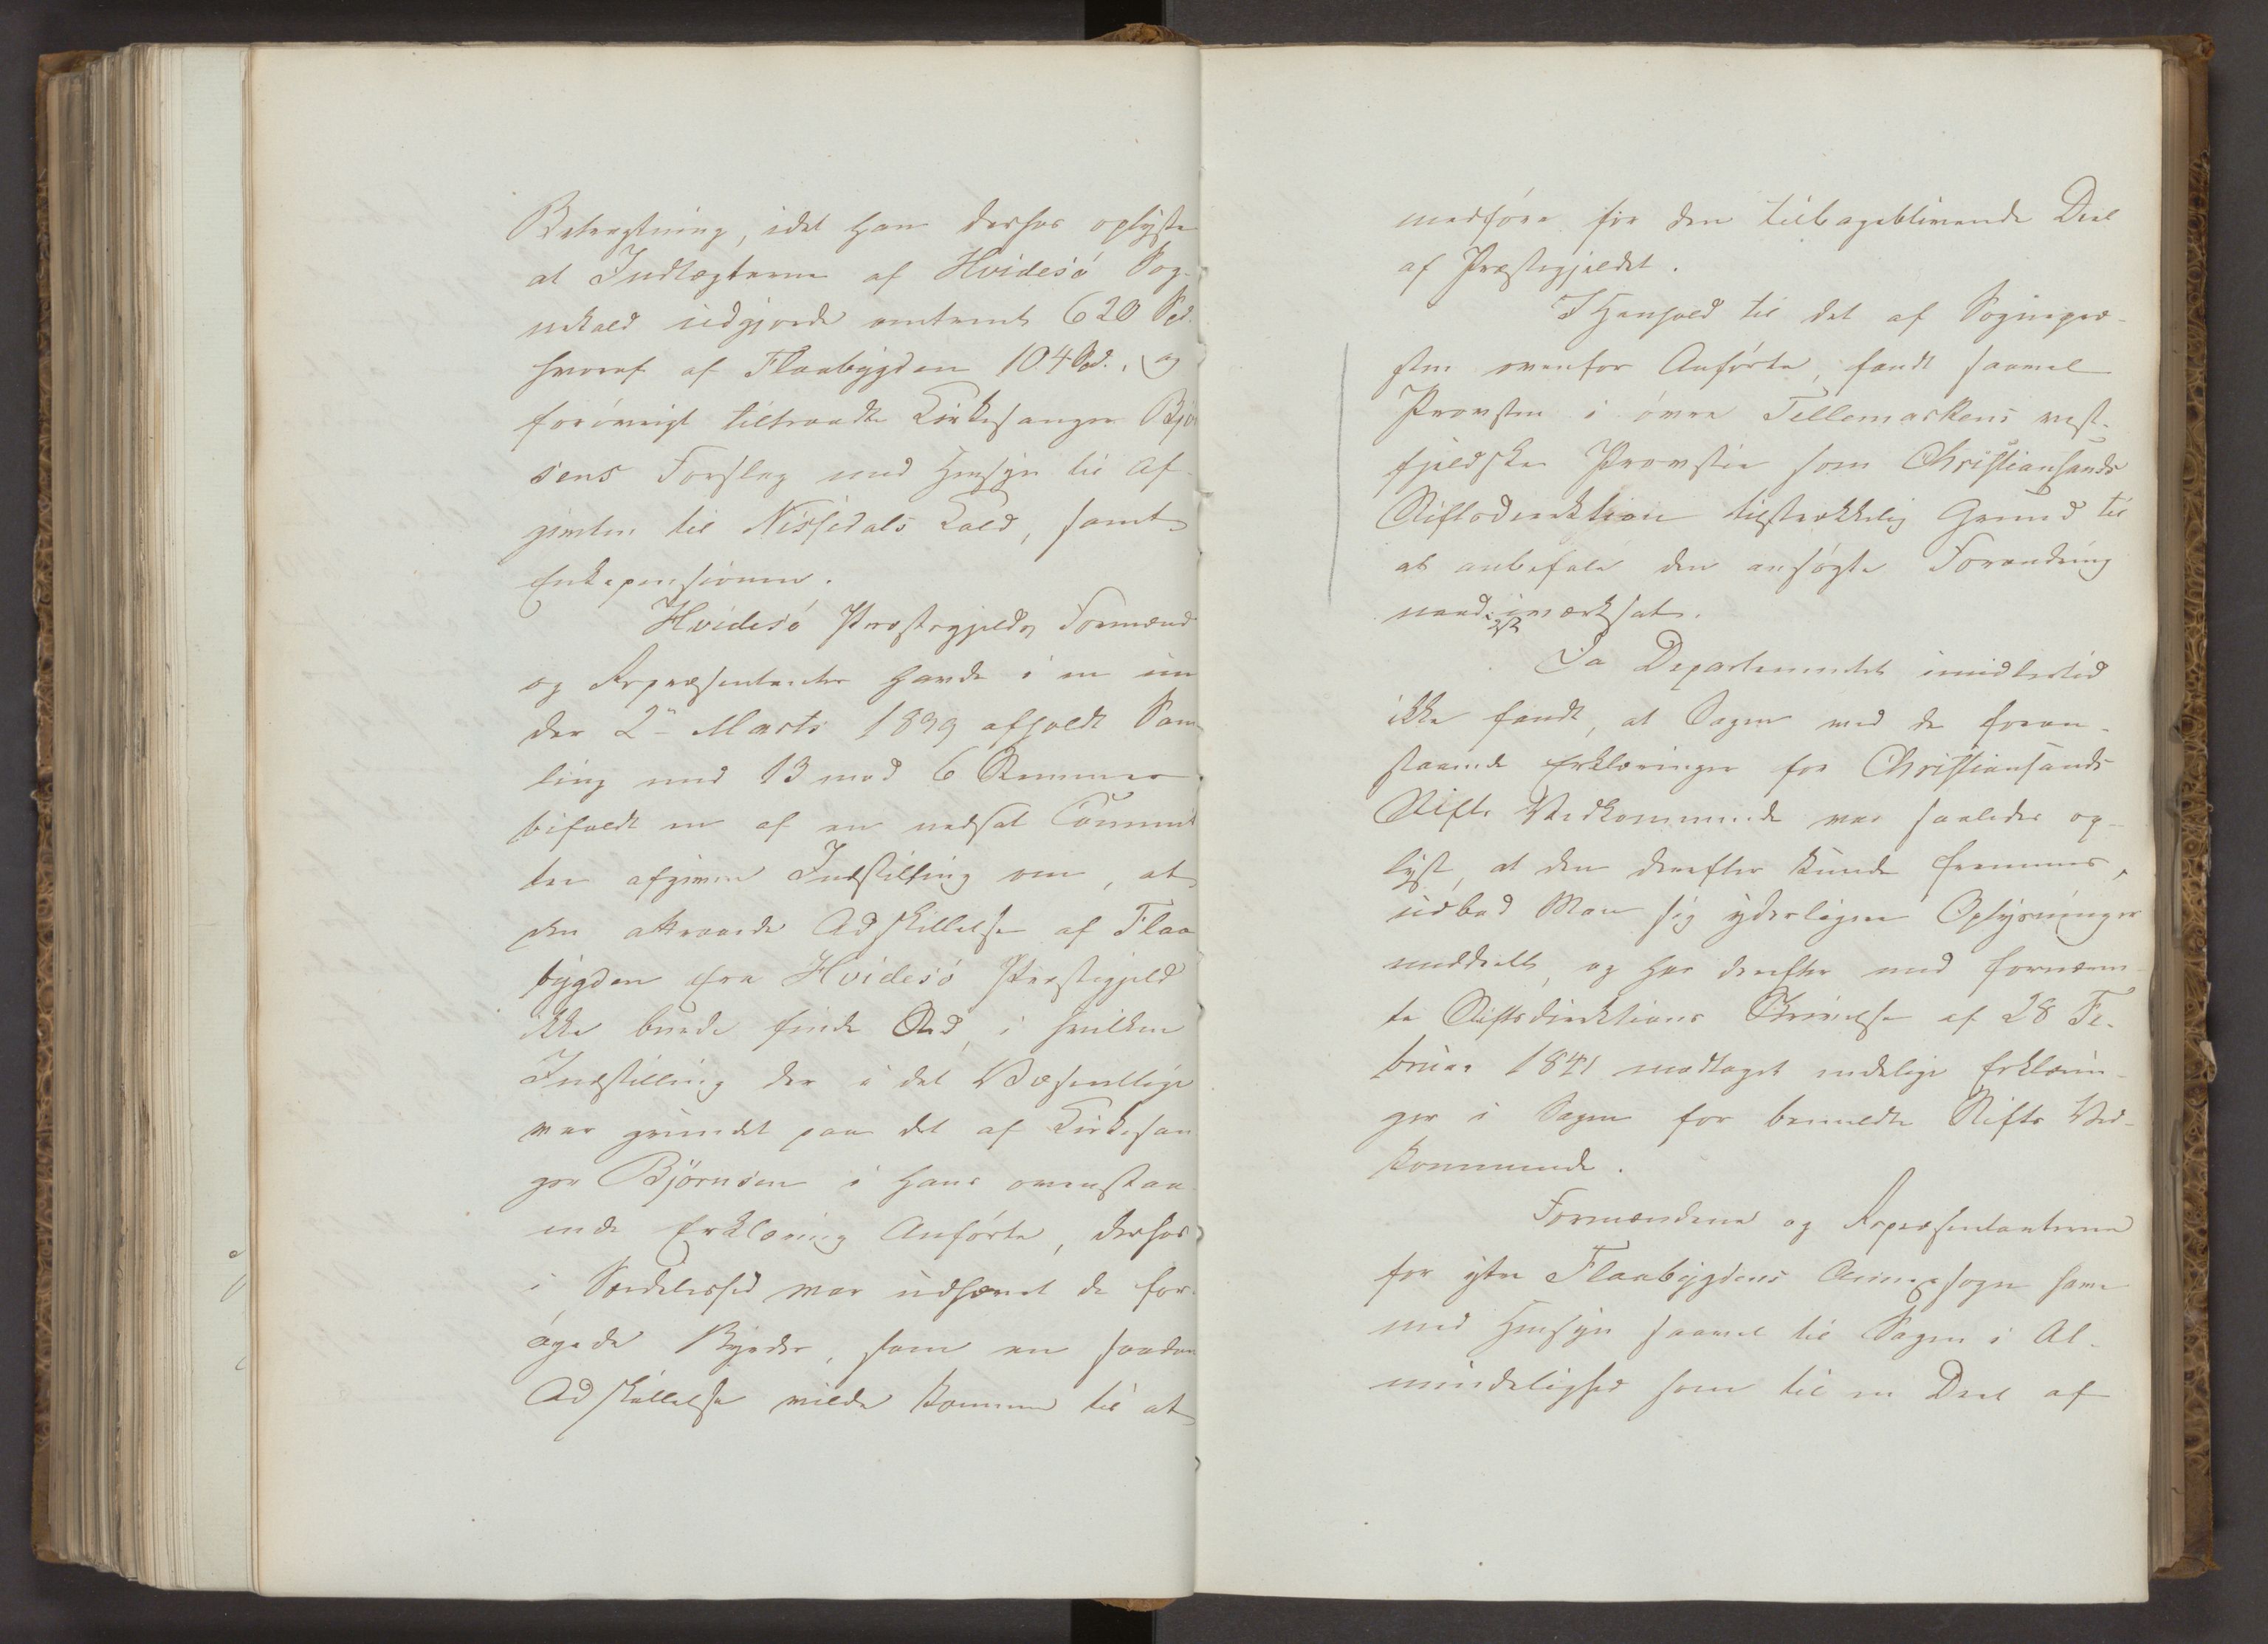 Betragtning, idet han derhos oplyste
at Indtægterne af Hvidesö Sog-
nekald udgjorde omtrent 620 Spd.
hvoraf af Flaabygden 104 Spd., og
forövrigt tiltraadte Kirkesanger Björn
sens Forslag med Hensyn til Af-
giften til Nissedals Kald, samt
Enkepensionen.
Hvidesö Præstegjelds Formænd
og Repræsentanter havde i en un
der 2den Marts 1839 afholdt Sam
ling med 13 mod 6 Stemmer
bifaldt en af en nedsat Commit
tee afgiven Indstilling om, at
den attraaede Adskillelse af Flaa
bygden fra Hvidesö Præstegjeld
ikke burde finde Sted, i hvilken
Indstilling der i det Væsentlige
var grundet paa det af Kirkesan
ger Björnsen i hans ovenstaa
ende Erklæring Anförte, derhos
i Særdeleshed var udhævet de for-
ögede Byrder, som en saadan
Adskillelse vilde komme til at
medföre for den tilbageblivende Deel
af Præstegjeldet.
I Henhold til det af Sognepræ-
sten ovenfor Anförte, fandt saavel
Provsten i övre Tellemarkens vest-
fjeldske Provstie som Christiansands
Stiftsdirektion tilstrækkelig Grund til
at anbefale den ansögte Forandring
naadigst iværksat.
Da Departementet imidlertid
ikke fandt, at Sagen med de foran-
staaende Erklæringer for Christiansands
Stifts Vedkommende var saaledes op-
lyst, at den derefter kunde fremmes,
udbad Man sig yderligere Oplysninger
meddeelt, og har derefter med fornævn-
te Stiftsdirektions Skrivelse af 28 Fe-
bruar 1841 modtaget endelige Erklærin-
ger i Sagen for bemeldte Stifts Ved-
kommende.
Formændene og Repræsentanterne
for ytre Flaabygdens Annexsogn have
med Hensyn saavel til Sagen i Al-
mindelighed som til en Deel af